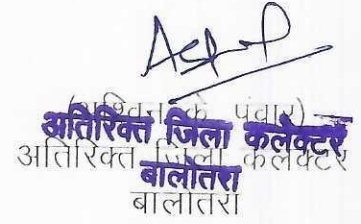 (अश्विन के. पंवार)
अतिरिक्त जिला कलेक्टर
अतिरिक्त जिला कलेक्टर
बालोतरा
बालोतरा